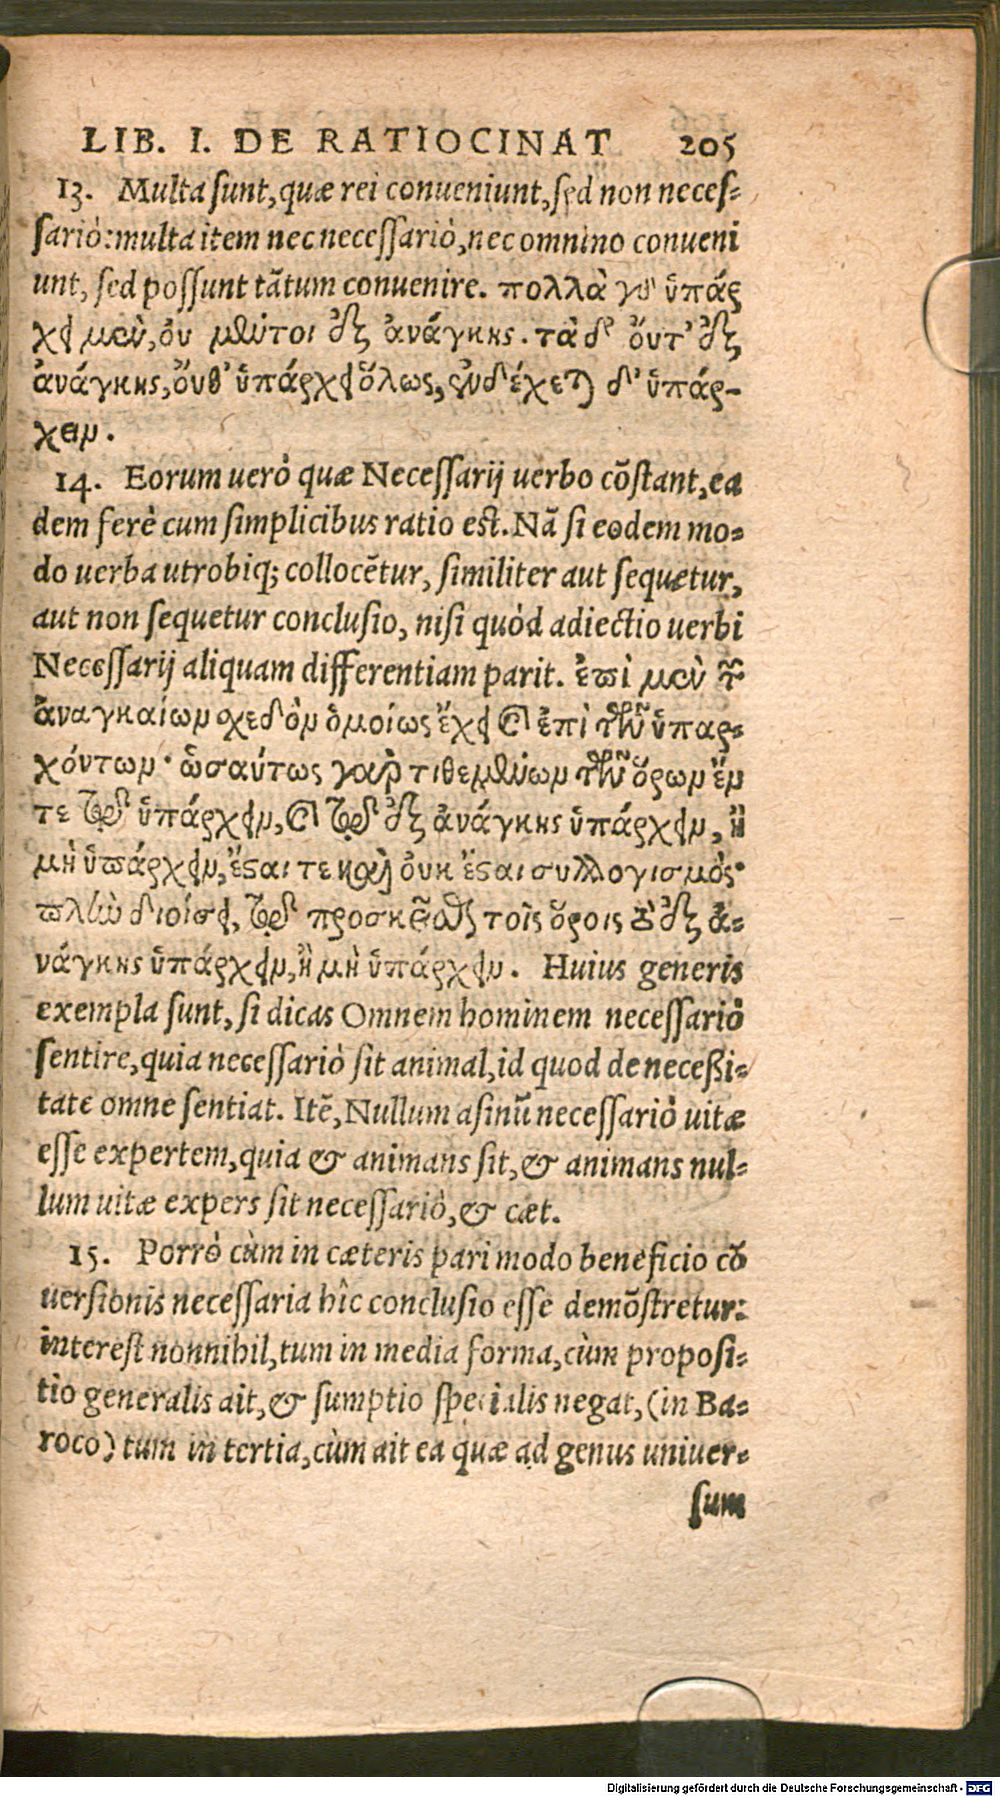 LIB. I. DE RATIOCINAT 205
13. Multa sunt, quæ rei conueniunt, sed non neces-
sariò: multa item nec necessariò, nec omnino conueni
unt, sed possunt tãtum conuenire. πολλὰ γὸ ὑπάρ
χει μὲν, οὐ μέντοι ἐξ ἀνάγκης. τὰ δ' οὔτ' ἐξ
ἀνάγκης, οὔθ' ὑπάρχει ὅλως, ἐνδέχεται δ' ὑπάρ-
χειν.
14. Eorum uerò quæ Necessarij uerbo cõstant, ea
dem ferè cum simplicibus ratio est. Nã si eodem mo-
do uerba utrobiq; collocẽtur, similiter aut sequetur,
aut non sequetur conclusio, nisi quòd adiectio uerbi
Necessarij aliquam differentiam parit. ἐπὶ μὲν τῶν
ἀναγκαίων σχεδὸν ὁμοίως ἔχει καὶ ἐπὶ τῶν ὑπαρ-
χόντων· ὡσαύτως γὰρ τιθεμένων τῶν ὅρων ἔν
τε τῷ ὑπάρχειν, καὶ τῷ ἐξ ἀνάγκης ὑπάρχειν, ἢ
μὴ ὑπάρχειν, ἔσαι τε καὶ οὐκ ἔσαι συλλογισμός·
πλὴν διοίσει, τῷ προσκεῖσθαι τοῖς ὅροις τὸ ἐξ ἀ-
νάγκης ὑπάρχειν, ἢ μὴ ὑπάρχειν. Huius generis
exempla sunt, si dicas Omnem hominem necessariò
sentire, quia necessariò sit animal, id quod de necessi-
tate omne sentiat. Itẽ, Nullum asinũ necessariò uitæ
esse expertem, quia & animans sit, & animans nul-
lum uitæ expers sit necessariò, & cæt.
15. Porrò cùm in cæteris pari modo beneficio cõ
uersionis necessaria hîc conclusio esse demõstretur:
interest nonnihil, tum in media forma, cùm proposi-
tio generalis ait, & sumptio specialis negat, (in Ba-
roco) tum in tertia, cùm ait ea quæ ad genus uniuer-
sum
Digitalisierung gefördert durch die Deutsche Forschungsgemeinschaft - DFG